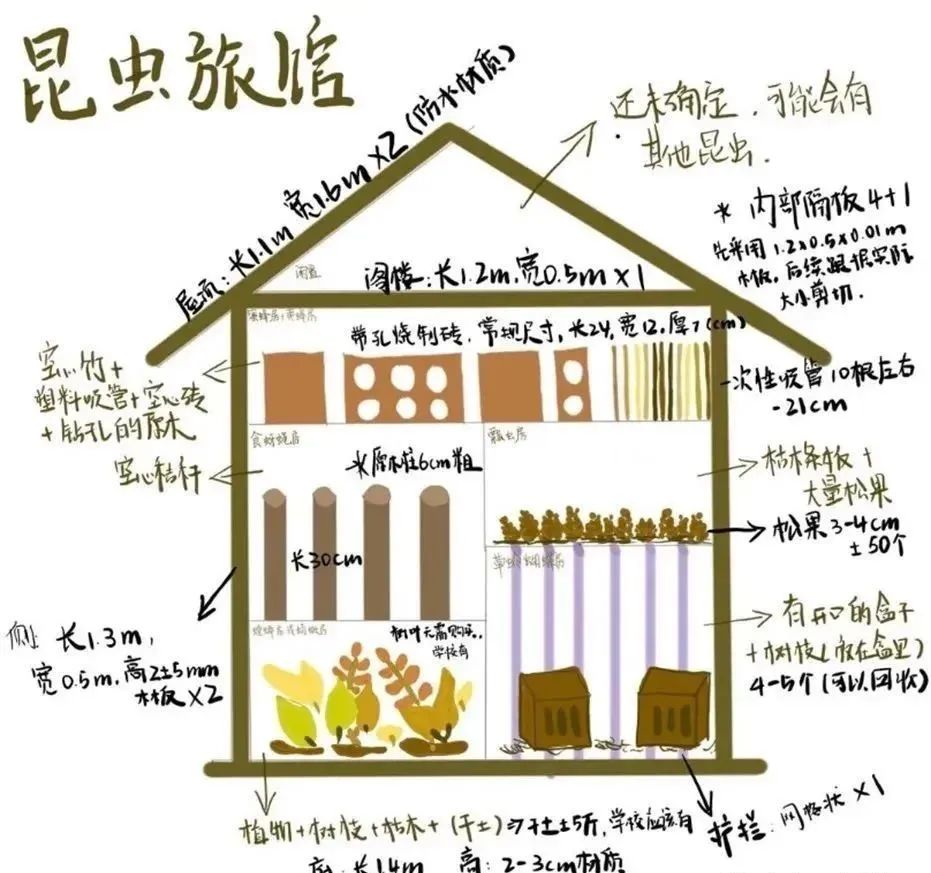 昆虫旅馆
屋顶：长1.1m 宽1.6m ×2（防水材质）
还未确定，可能会有
其他昆虫.
* 内部隔板4+1
先采用1.2×0.5×0.01m
木板，后续跟据实际
大小剪切.
闲置
阁楼：长1.2m，宽0.5m ×1
带孔烧制砖，常规尺寸，长24，宽12，厚7(cm)
空心竹+
塑料吸管+空心砖
+钻孔的原木
一次性吸管10根左右
-21cm
食蚜蝇房
瓢虫房
空心秸秆
*原木柱6cm粗
长30cm
枯木条板+
大量松果
松果3-4cm
±50个
侧：长1.3m，
宽0.5m，高2±5mm
木板×2
树叶无需购买，
学校有
有开口的盒子
+树枝（放在盒里）
4-5个（可以回收）
植物+树枝+枯木+（干土）⇒干土±5斤，学校应该有
护拦：网格状×1
底：长1.4m 高：2-3cm材质